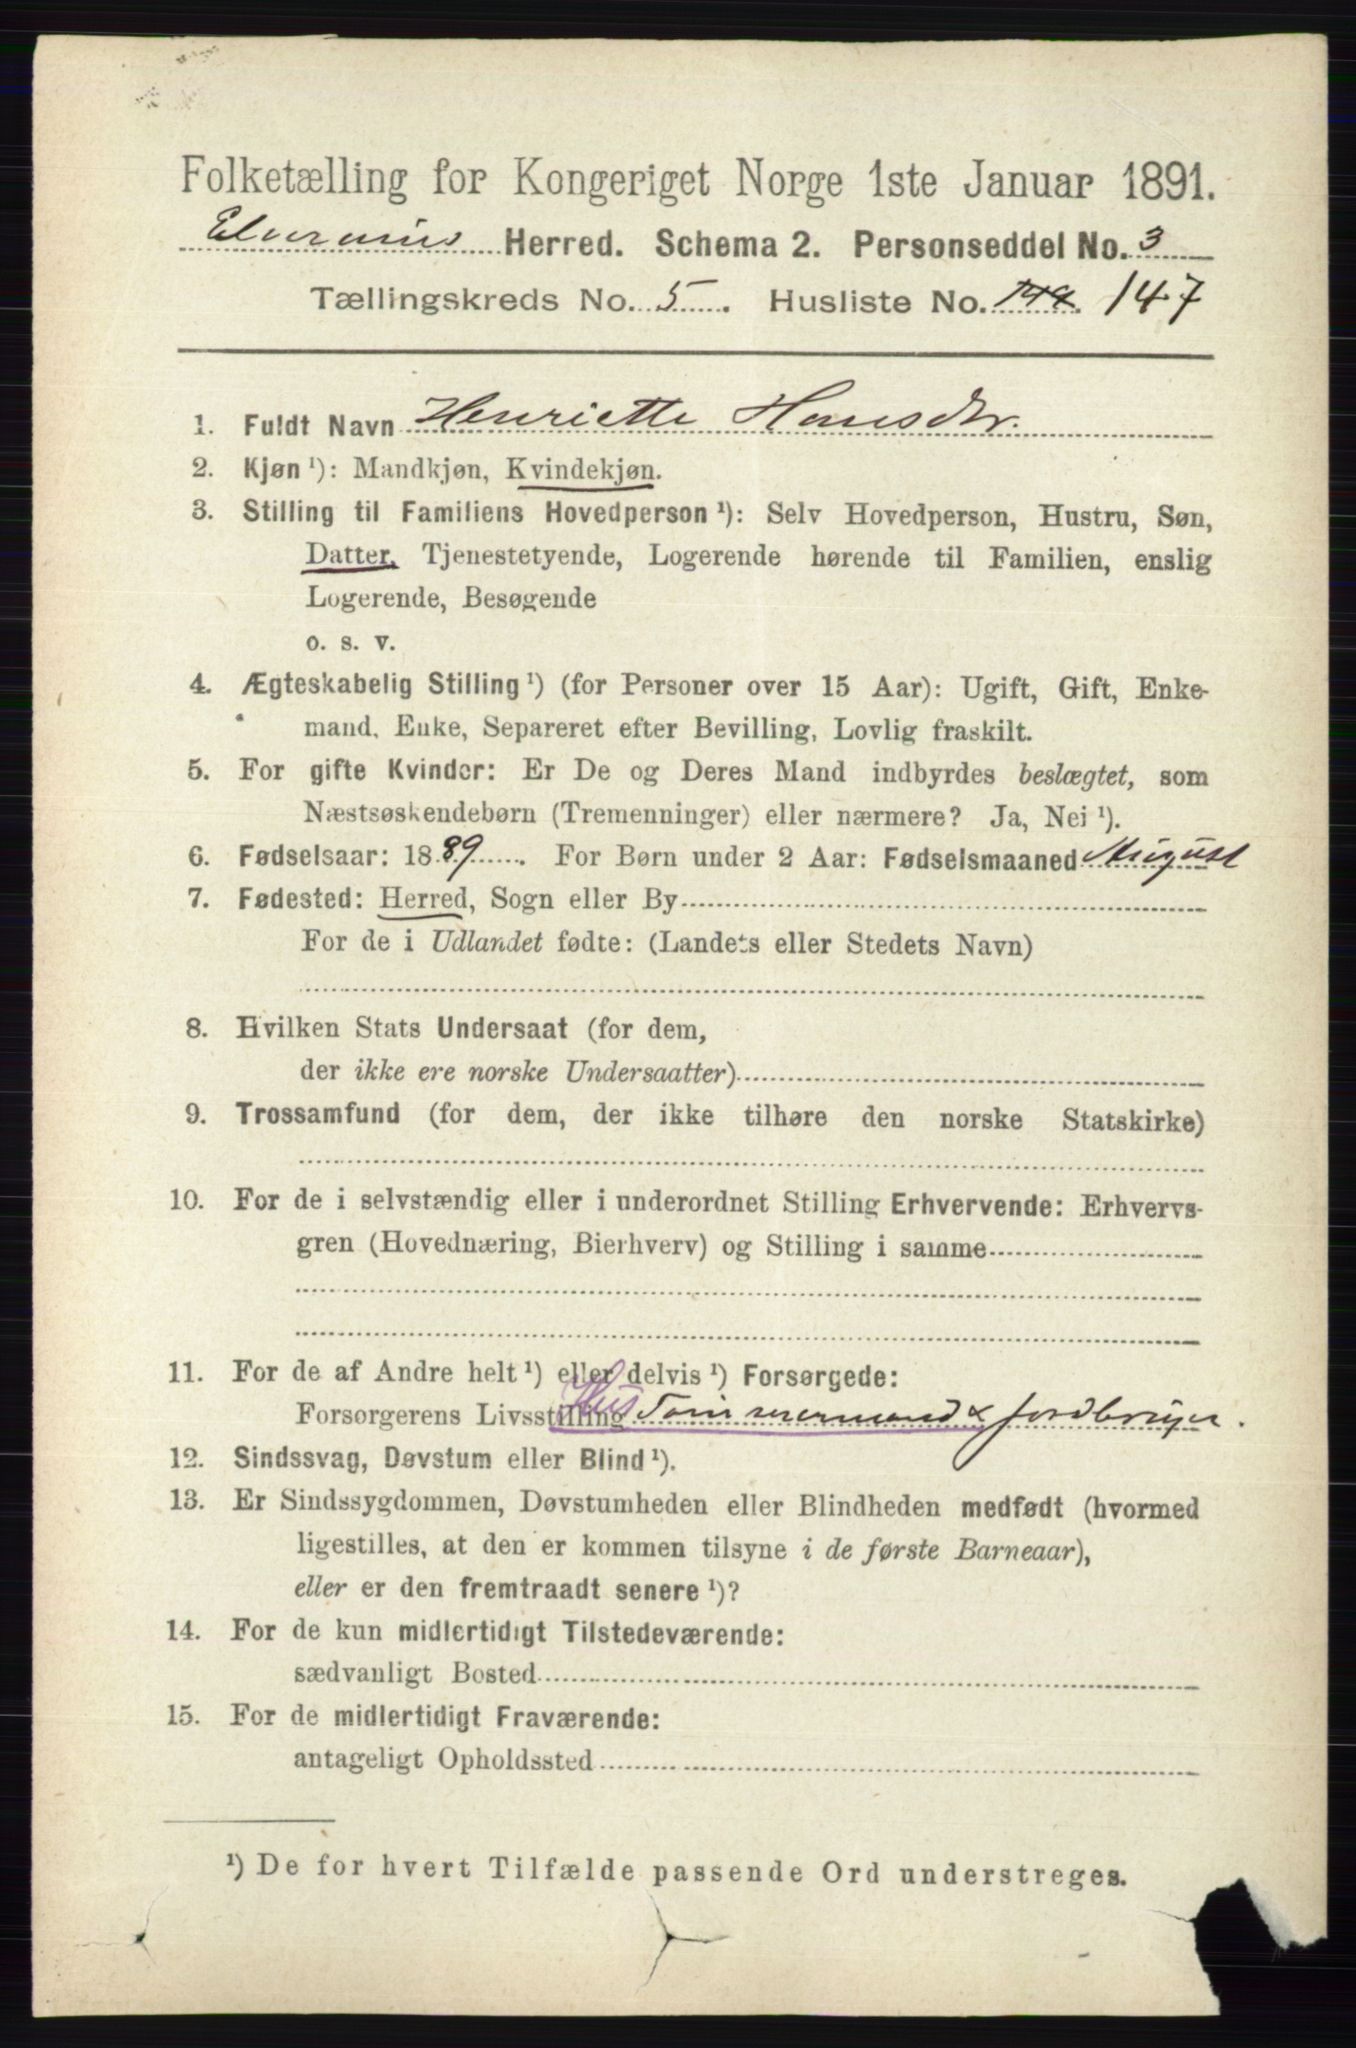 Folketælling for Kongeriget Norge 1ste Januar 1891.
Elverums Herred. Schema 2. Personseddel No. 3
Tællingskreds No. 5. Husliste No. 147
1. Fuldt Navn Henriette Hansdtr.
2. Kjøn ¹): Mandkjøn, Kvindekjøn.
3. Stilling til Familiens Hovedperson ¹): Selv Hovedperson, Hustru, Søn,
Datter, Tjenestetyende, Logerende hørende til Familien, enslig
Logerende, Besøgende
o. s. v.
4. Ægteskabelig Stilling ¹) (for Personer over 15 Aar): Ugift, Gift, Enke-
mand, Enke, Separeret efter Bevilling, Lovlig fraskilt.
5. For gifte Kvinder: Er De og Deres Mand indbyrdes beslægtet, som
Næstsøskendebørn (Tremenninger) eller nærmere? Ja, Nei ¹).
6. Fødselsaar: 1889. For Børn under 2 Aar: Fødselsmaaned August
7. Fødested: Herred, Sogn eller By
For de i Udlandet fødte: (Landets eller Stedets Navn)
8. Hvilken Stats Undersaat (for dem,
der ikke ere norske Undersaatter)
9. Trossamfund (for dem, der ikke tilhøre den norske Statskirke)
10. For de i selvstændig eller i underordnet Stilling Erhvervende: Erhvervs-
gren (Hovednæring, Bierhverv) og Stilling i samme
11. For de af Andre helt ¹) eller delvis ¹) Forsørgede:
Forsørgerens Livsstilling Hus Tømmermand & Jordbruger.
12. Sindssvag, Døvstum eller Blind ¹).
13. Er Sindssygdommen, Døvstumheden eller Blindheden medfødt (hvormed
ligestilles, at den er kommen tilsyne i de første Barneaar),
eller er den fremtraadt senere ¹)?
14. For de kun midlertidigt Tilstedeværende:
sædvanligt Bosted
15. For de midlertidigt Fraværende:
antageligt Opholdssted
¹) De for hvert Tilfælde passende Ord understreges.